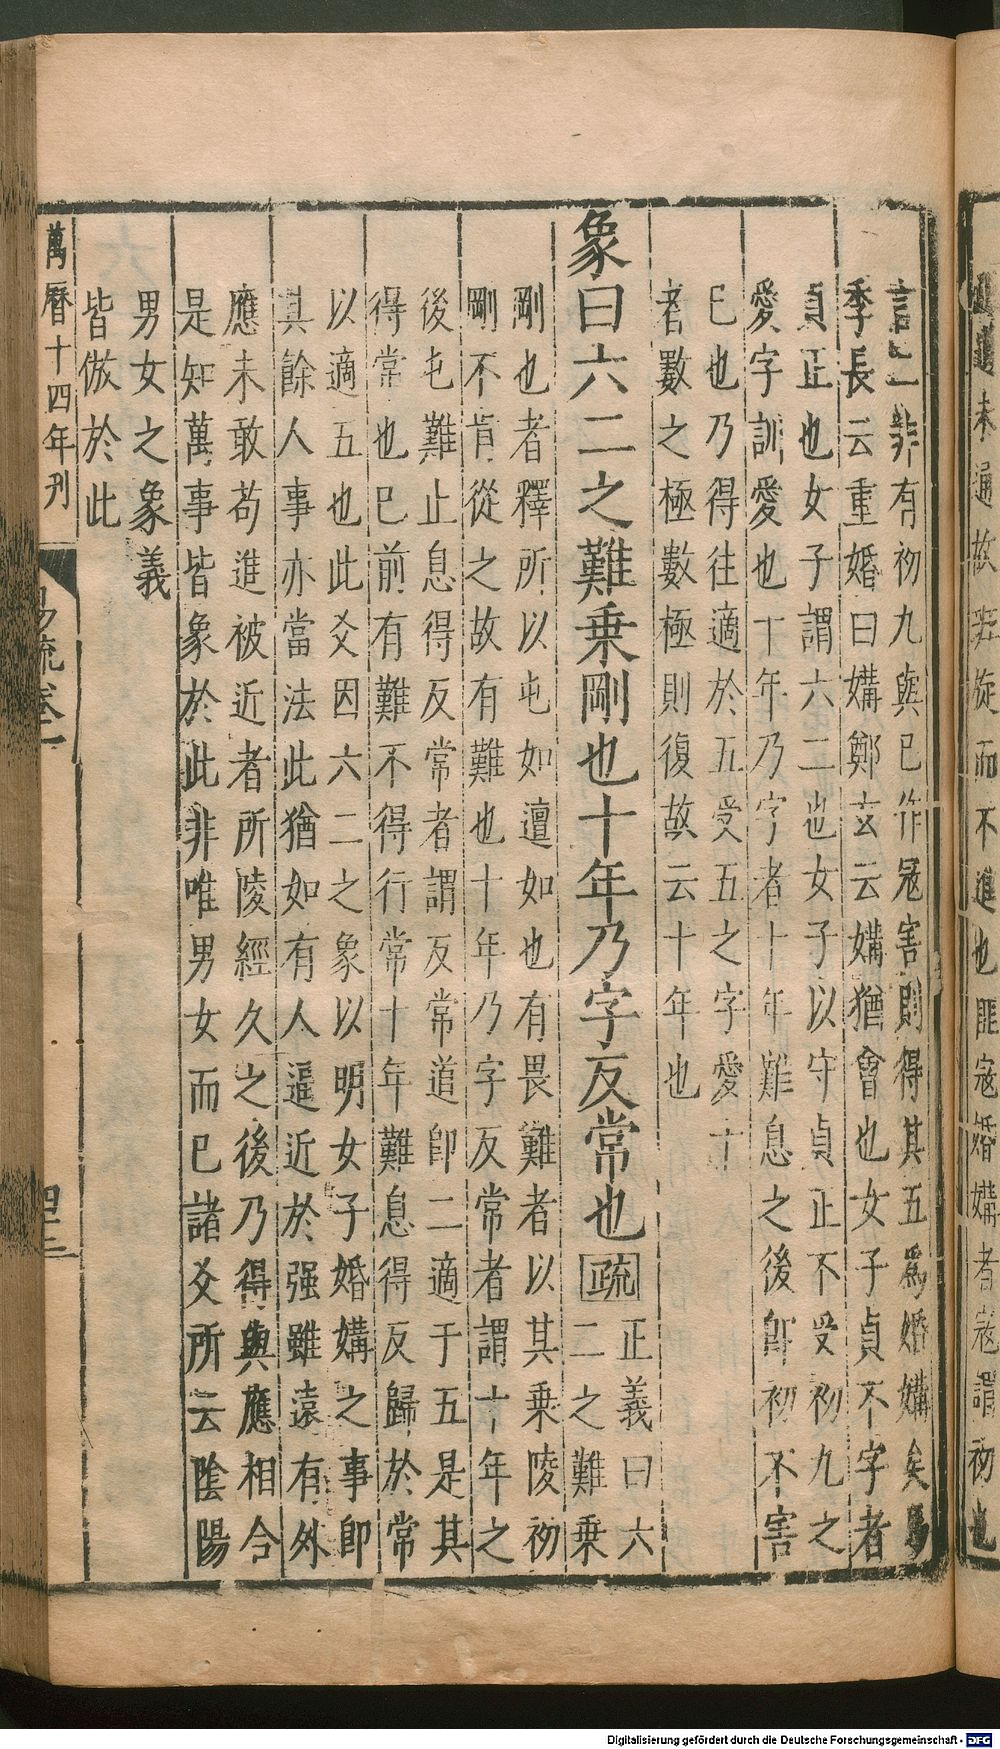 言二非有初九與已作寇害則得其五爲婚媾矣馬
季長云重婚曰媾鄭玄云媾猶會也女子貞不字者
貞正也女子謂六二也女子以守貞正不受初九之
愛字訓愛也十年乃字者十年難息之後即初不害
已也乃得往適於五受五之字愛十
者數之極數極則復故云十年也
象曰六二之難乗剛也十年乃字反常也疏
正義曰六
二之難乗
剛也者釋所以屯如邅如也有畏難者以其乗陵初
剛不肯從之故有難也十年乃字反常者謂十年之
後屯難止息得反常者謂反常道即二適于五是其
得常也已前有難不得行常十年難息得反歸於常
以適五也此爻因六二之象以明女子婚媾之事即
其餘人事亦當法此猶如有人逼近於强雖遠有外
應未敢苟進被近者所陵經久之後乃得與應相合
是知萬事皆象於此非唯男女而已諸爻所云陰陽
男女之象義
皆倣於此
萬曆十四年刋 易疏卷一
未通故班旋而不進也匪寇婚媾者寇謂初也
Digitalisierung gefördert durch die Deutsche Forschungsgemeinschaft - DFG